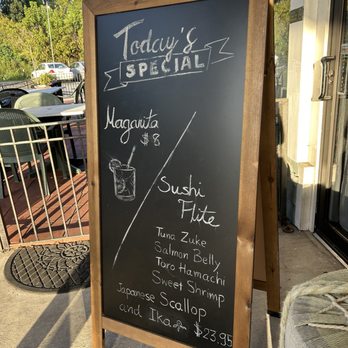 Today's
SPECIAL
Magarita
$8
Sushi
Flite
Tuna Zuke
Salmon Belly
Toro Hamachi
Sweet Shrimp
Japanese Scallop
and Ika $23.95